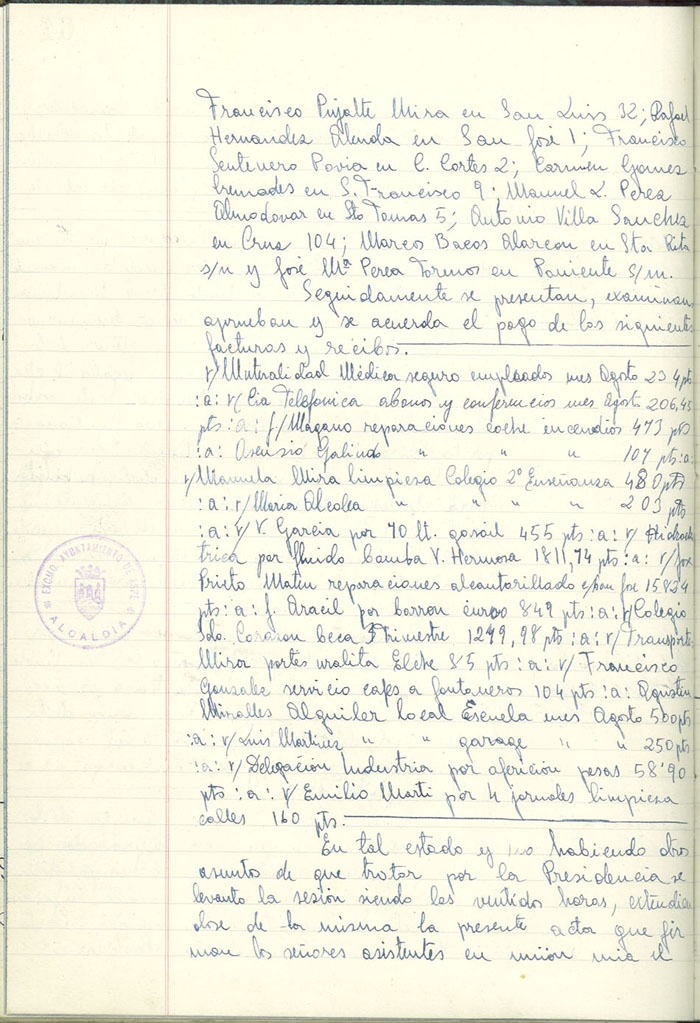 Francisco Pujalte Mira en San Luis 32; Rafael
Hernandez Abenda en San José 1; Francisco
Sentenero Pavia en C. Cortes 2; Carmen Gomez
Cremades en S. Francisco 9; Manuel L. Perea
Almodovar en Sto Tomas 5; Antonio Villa Sanchez
en Cruz 104; Marcos Bacas Alarcon en Sta Rita
s/n y José Mª Perea Torenos en Poniente s/n.
Seguidamente se presentan, examinan,
aprueban y se acuerda el pago de los siguientes
facturas y recibos.
r/ Mutualidad Médica seguro empleados mes Agosto 234 pts
:a: r/ Cia Telefonica abonos y conferencias mes Agosto 206,45
pts :a: f/ Magano reparaciones coche incendios 473 pts
:a: Asensio Galindo " " " 107 pts :a:
r/ Manuela Mira limpieza Colegio 2º Enseñanza 480 pts
:a: r/ Maria Alcolea " " " " 203 pts
:a: r/ V. Garcia por 70 lt. gasoil 455 pts :a: r/ Hidroelec
trica por fluido bomba V. Hermosa 1811,74 pts :a: r/
Prieto Mateu reparaciones alcantarillado
pts :a: f. Aracil por barron 849 pts :a: r/ Colegio
Sdo. Corazon beca 3 trimestre 1249,98 pts :a: r/ Transportes
Mira portes uralita Elche 85 pts :a: r/ Francisco
Gonzalez servicio cafes a fontaneros 104 pts :a: Agustin
Miralles Alquiler local Escuela mes Agosto 500 pts
:a: r/ Luis Martinez " " garage " " 250 pts
:a: r/ Delegación Industria por aferición pesas 58'90
pts :a: r/ Emilio Marti por 4 jornales limpieza
calles 160 pts.
En tal estado y no habiendo otros
asuntos de que tratar por la Presidencia se
levanto la sesión siendo las ventidos horas, extendien
dose de la misma la presente acta que fir
man los señores asistentes en unión mia el
EXCMO. AYUNTAMIENTO DE ASPE
ALCALDIA